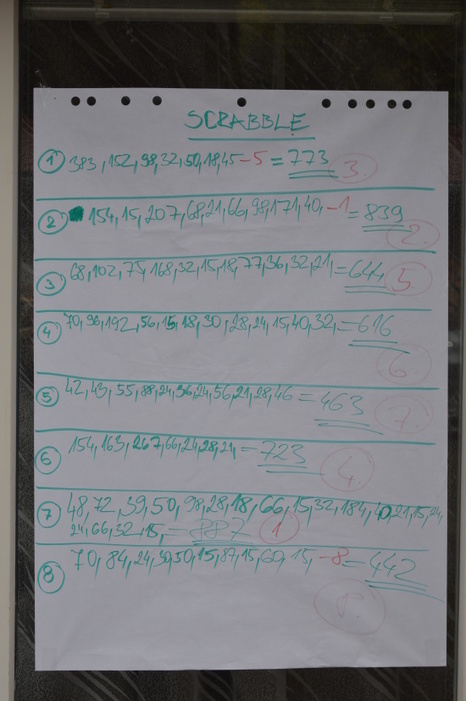 SCRABBLE
1 383, 152, 98, 32, 50, 18, 45 -5 = 773 3.
2 154, 15, 207, 68, 21, 66, 98, 171, 40, -1 = 839 2.
3 68, 102, 75, 168, 32, 15, 18, 77, 36, 32, 21, = 644 5
4 70, 90, 192, 56, 15, 18, 30, 28, 24, 15, 40, 32, = 616 6.
5 42, 43, 55, 88, 24, 36, 24, 56, 21, 28, 46 = 463 7.
6 154, 163, 267, 66, 24, 28, 21, = 723 4.
7 48, 72, 39, 50, 98, 28, 18, 66, 15, 32, 184, 40, 21, 15, 24,
24, 66, 32, 15, = 887 1
8 70, 84, 24, 30, 50, 15, 87, 15, 60, 15, -8 = 442
8.